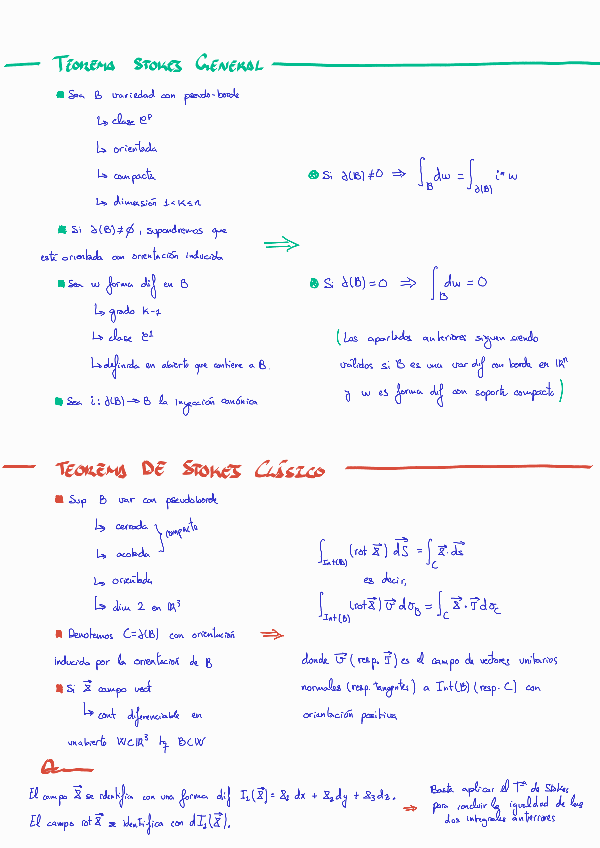 TEOREMA STOKES GENERAL
Sea B variedad con pseudo-borde
↳ clase C^p
↳ orientada
↳ compacta
↳ dimensión 1<K≤n
Si ∂(B)≠∅, supondremos que
está orientada con orientación inducida
Sea w forma dif en B
↳ grado K-1
↳ clase C^1
↳ definida en abierto que contiene a B.
Sea i: ∂(B) → B la inyección canónica
⇒
Si ∂(B)≠0 ⇒ ∫_B dw = ∫_∂(B) i* w
Si ∂(B)=0 ⇒ ∫_B dw = 0
(Los apartados anteriores siguen siendo
válidos si B es una var dif con borde en ℝ^n
y w es forma dif con soporte compacto)
TEOREMA DE STOKES CLÁSICO
Sup B var con pseudoborde
↳ cerrada } compacta
↳ acotada
↳ orientada
↳ dim 2 en ℝ^3
Denotemos C=∂(B) con orientación
inducida por la orientación de B
Si X⃗ campo vect
↳ cont diferenciable en
un abierto W⊂ℝ^3 tq B⊂W
⇒
∫_Int(B) (rot X⃗) dS⃗ = ∫_C X⃗ · ds⃗
es decir,
∫_Int(B) (rot X⃗) V⃗ dσ_B = ∫_C X⃗ · T⃗ dσ_C
donde V⃗ (resp. T⃗) es el campo de vectores unitarios
normales (resp. tangentes) a Int(B) (resp. C) con
orientación positiva
El campo X⃗ se identifica con una forma dif I₁(X⃗) = X₁ dx + X₂ dy + X₃ dz.
El campo rot X⃗ se identifica con dI₁(X⃗).
⇒
Basta aplicar el Tª de Stokes
para concluir la igualdad de las
dos integrales anteriores